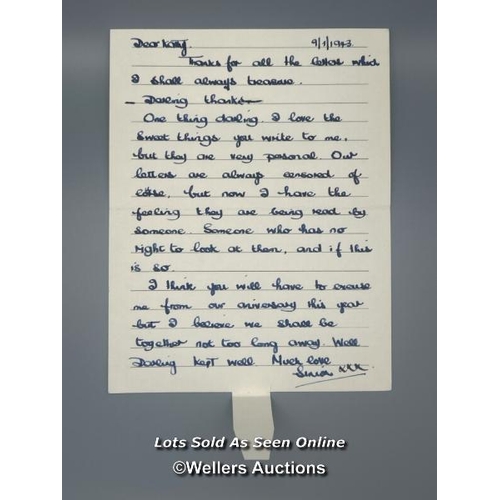 Dear Kitty. 9/1/1943.
Thanks for all the letters which
I shall always treasure.
- Darling thanks -
One thing darling. I love the
sweet things you write to me.
but they are very personal. Our
letters are always censored of
corse. but now I have the
feeling they are being read by
someone. Someone who has no
right to look at them, and if this
is so.
I think you will have to excuse
me from our aniversary this year
but I believe we shall be
together not too long away. Well
Darling kept well. Much love
xxx
Lots Sold As Seen Online
©Wellers Auctions